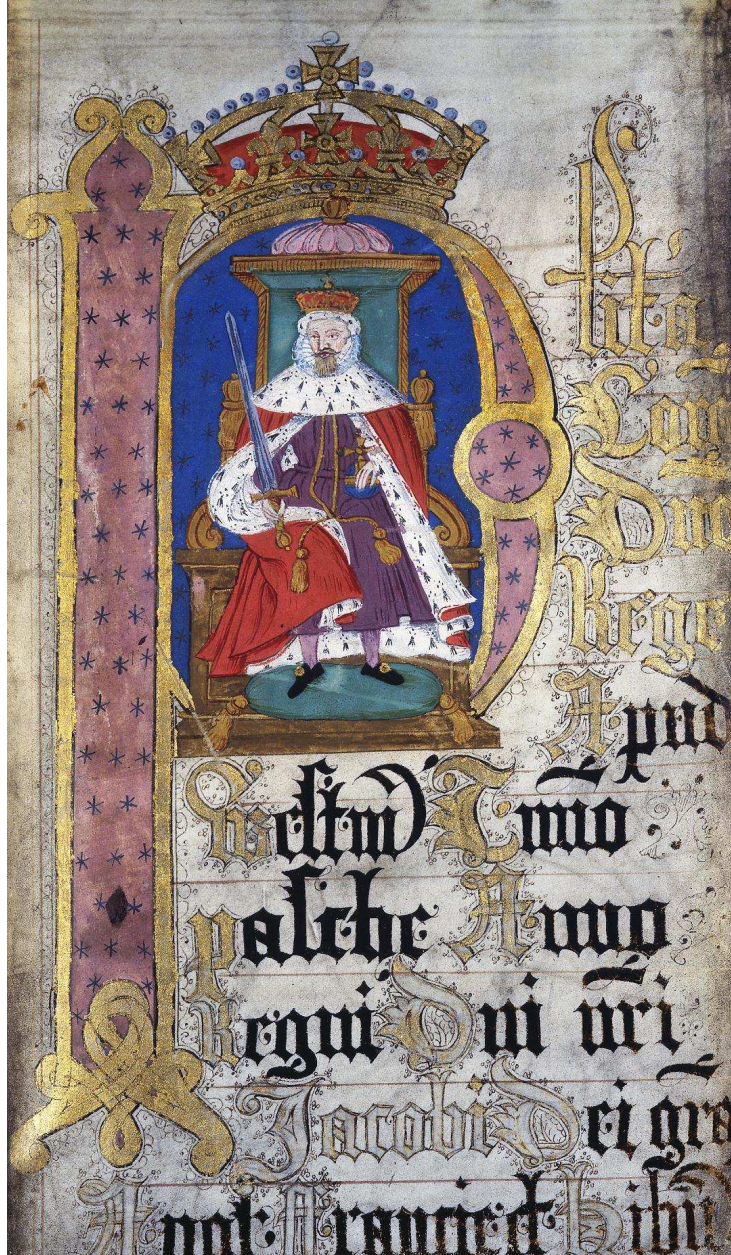 Plita
Cora
Dno
Rege
Apud
Westm̃ Tmĩo
Pasche Anno
Regni Dni nr̃i
Jacobi Dei gra
Angl Francie et Hibñ